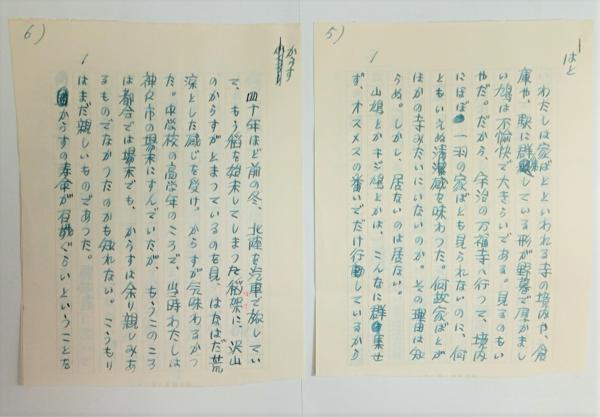 5)
はと
1
わたしは家ばとといわれる寺の境内や、倉
庫や、駅に群集している形が野蛮で厚かまし
い鳩は不愉快で大きらいである。見るのもい
やだ。だから、宇治の万福寺へ行つて、境内
にほぼ一羽の家ばとも見られないのに、何
ともいえぬ清潔感を味わつた。何故家ばとが
ほかの寺みたいにいないのか。その理由は知
らぬ。しかし、居ないのは居ない。
山鳩とかキジ鳩とかは、こんなに群集せ
ず、オスメスの番いでだけ行動しているから
6)
からす
1
四十年ほど前の冬、北陸を汽車で旅してい
て、もう稲を始末してしまつた稲架に、沢山
のからすがとまつているのを見、はなはだ荒
涼とした感じを受け。からすが気味わるかつ
た。中学校の高学年のころで、当時わたしは
神戸市の場末にすんでいたが、もうこのころ
は都会では場末でも、からすは余り親しみあ
るものでなかつたのかも知れない。こうもり
はまだ親しいものであつた。
からすの寿命が百歳ぐらいということを